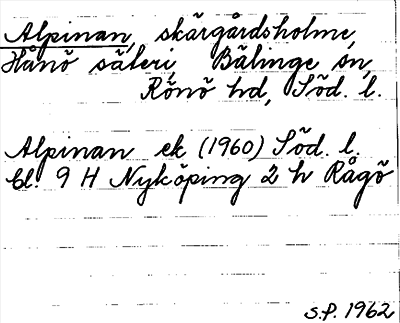 Alpinan, skärgårdsholme,
Hånö säteri, Bälinge sn,
Rönö hd, Söd. l.
Alpinan ek (1960) Söd. l.
Bl. 9 H Nyköping 2 h Rågö
S.P. 1962